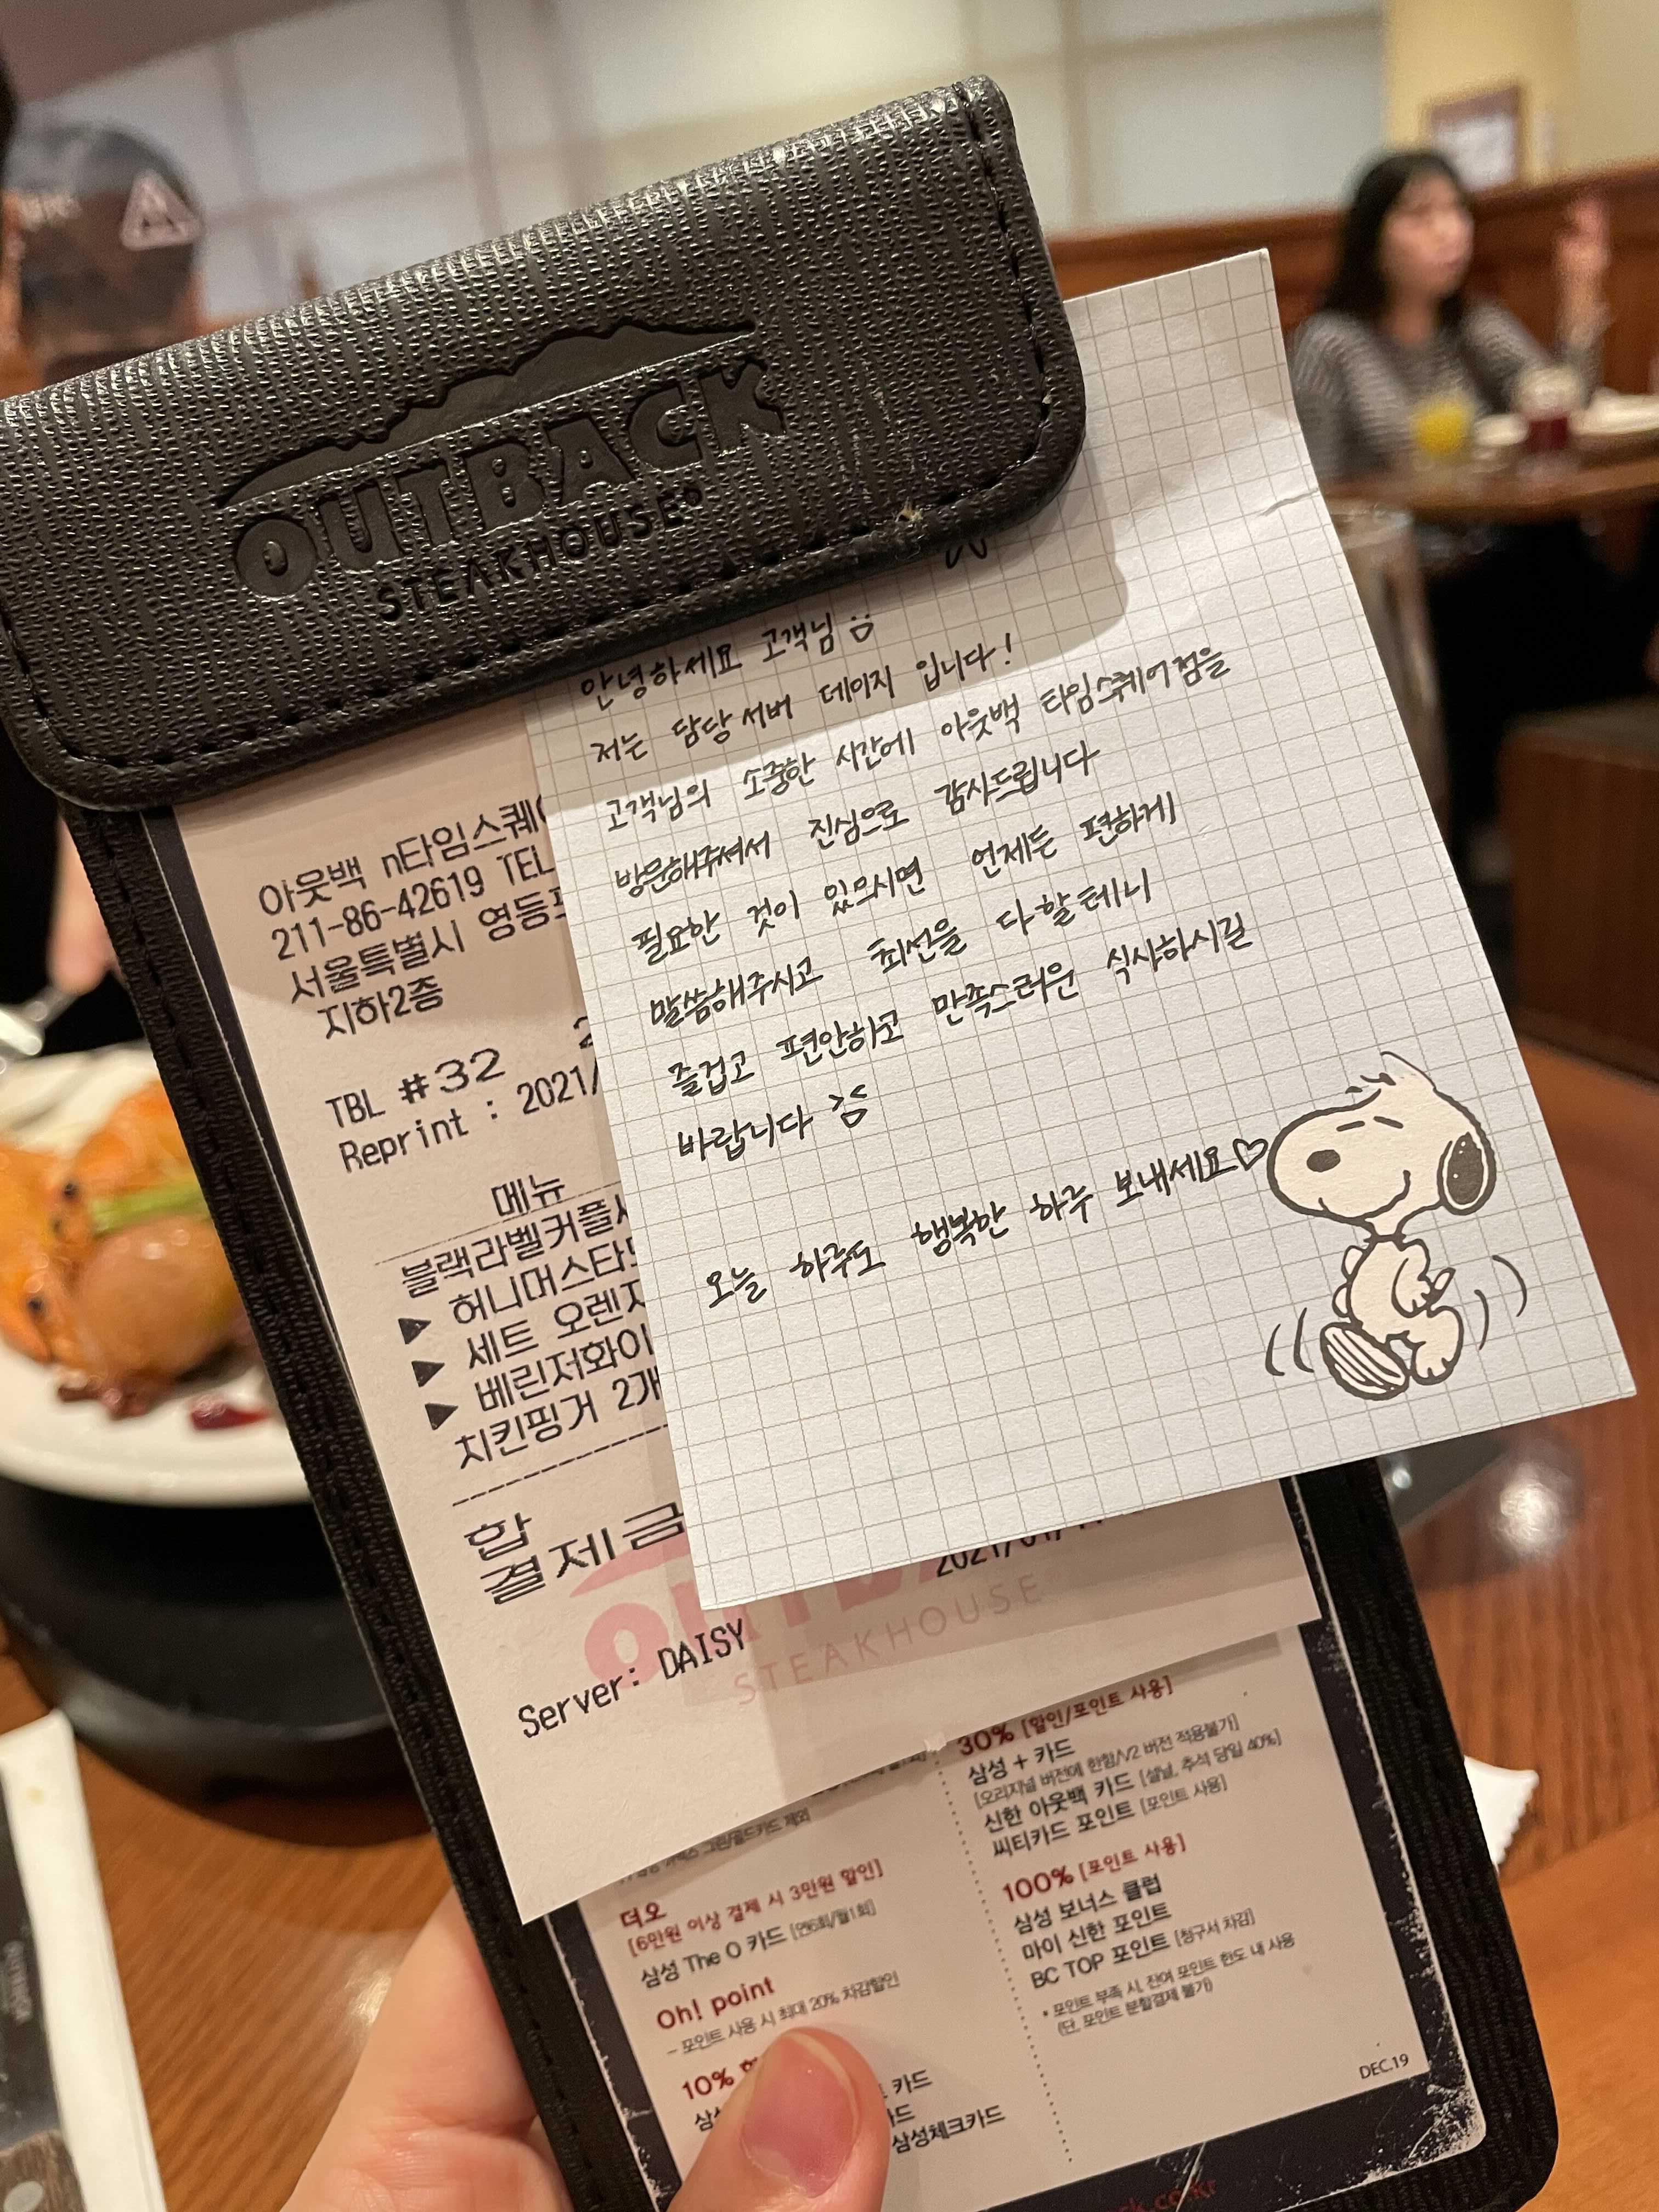 OUTBACK
STEAKHOUSE®
안녕하세요 고객님
저는 담당서버 데이지 입니다!
고객님의 소중한 시간에 아웃백 타임스퀘어점을
방문해주셔서 진심으로 감사드립니다
필요한 것이 있으시면 언제든 편하게
말씀해주시고 최선을 다할테니
즐겁고 편안하고 만족스러운 식사하시길
바랍니다
오늘 하루도 행복한 하루 보내세요♡
아웃백 n타임스퀘
211-86-42619 TEL
서울특별시 영등포
지하2층
TBL #32
Reprint : 2021/
메뉴
블랙라벨커플
▶ 허니머스타드
▶ 세트 오렌지
▶ 베린저화이
치킨핑거 2개
합
결제금
2021/01/
OUTBACK
STEAKHOUSE
Server: DAISY
더오
[6만원 이상 결제 시 3만원 할인]
삼성 The O 카드 [연6회/월1회]
Oh! point
- 포인트 사용 시 최대 20% 차감할인
10%
카드
삼성체크카드
30% [할인/포인트 사용]
삼성 + 카드
[오리지널 버전에 한함/V2 버전 적용불가]
신한 아웃백 카드 [설날, 추석 당일 40%]
씨티카드 포인트 [포인트 사용]
100% [포인트 사용]
삼성 보너스 클럽
마이 신한 포인트
BC TOP 포인트 [청구서 차감]
* 포인트 부족 시, 잔여 포인트 한도 내 사용
(단, 포인트 분할결제 불가)
DEC.19